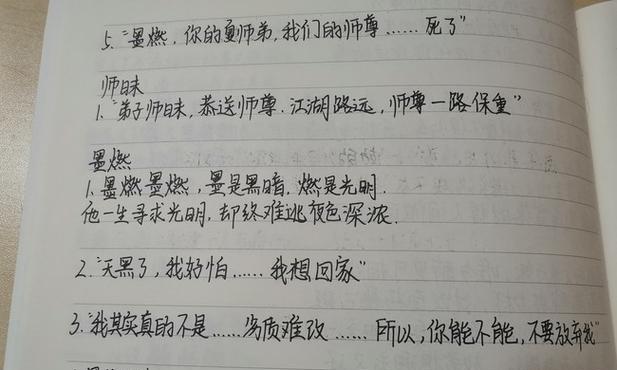 5. “墨燃，你的夏师弟，我们的师尊……死了”
师昧
1. “弟子师昧，恭送师尊.江湖路远，师尊一路保重”
墨燃
1. 墨燃墨燃，墨是黑暗.燃是光明.
他一生寻求光明，却终难逃夜色深浓.
2. “天黑了，我好怕……我想回家”
3. “我其实真的不是……劣质难改……所以，你能不能，不要放弃我”